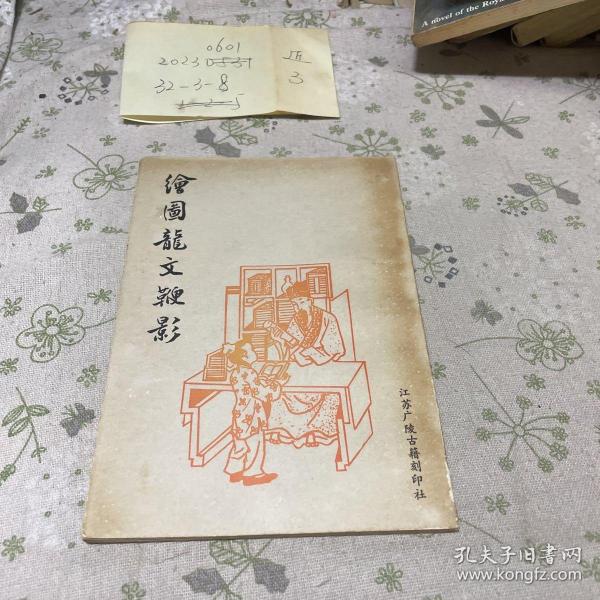 A novel of the Roya
0601
2023
32-3-8
3
繪圖龍文鞭影
江苏广陵古籍刻印社
孔夫子旧书网
www.kongfz.com